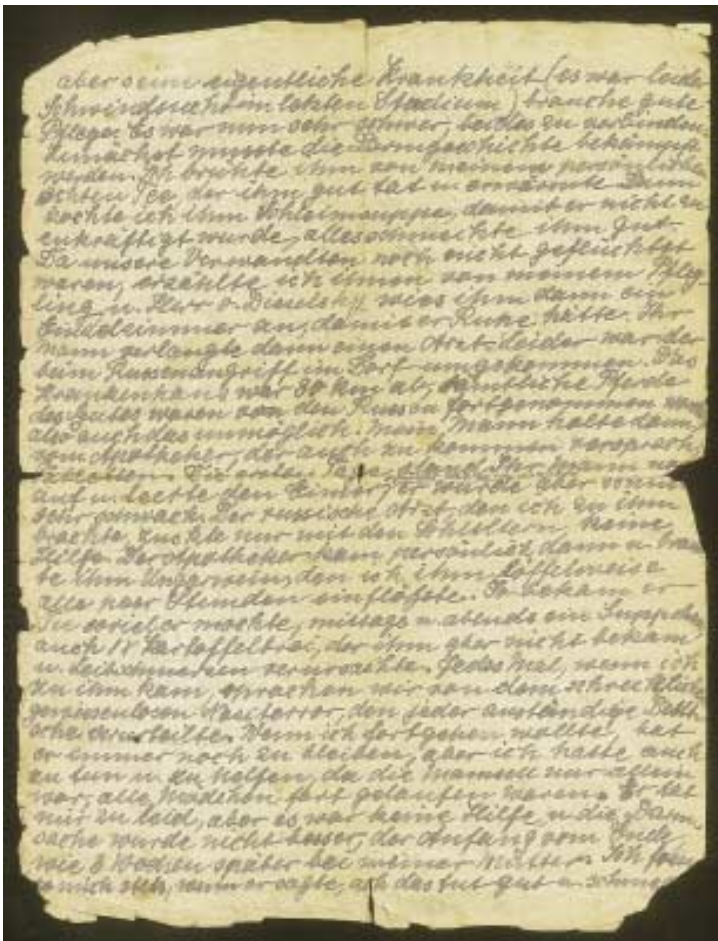 aber seine eigentliche Krankheit (es war leider
Schwindsucht im letzten Stadium) brauche gute
Pflege. Es war nun sehr schwer, beides zu verbinden.
Zunächst musste die Darmgeschichte bekämpft
werden. Ich brachte ihm von meinem persönlichen
echten Tee, der ihm gut tat u. erwärmte. Dann
kochte ich ihm Schleimsuppe, damit er nicht zu
entkräftigt wurde, alles schmeckte ihm gut.
Da unsere Verwandten noch nicht geflüchtet
waren, erzählte ich ihnen von meinem Pfleg-
ling u. Herr v. wies ihm dann ein
Einzelzimmer an, damit er Ruhe hätte. Ihr
Mann verlangte dann einen Arzt. Leider war der
beim Russenangriff im Dorf umgekommen. Das
Krankenhaus war 30 km ab, sämtliche Pferde
des Gutes waren von den Russen fortgenommen
also auch das unmöglich. Mein Mann holte dann
vom Apotheker, der auch zu kommen versprach
Die ersten Tage stand Ihr Mann noch
auf u. leerte den Eimer, er wurde aber dann
sehr schwach. Der russische Arzt, den ich zu ihm
brachte, zuckte nur mit den Schultern, keine
Hilfe. Der Apotheker kam persönlich dann u. brach
te ihm Ungarwein, den ich ihm löffelweise
alle paar Stunden einflößte. So bekam er
Tee soviel er mochte, mittags u. abends ein Süppchen
auch 1 x Kartoffelbrei, der ihm aber nicht bekam
u. Leibschmerzen verursachte. Jedes Mal, wenn ich
zu ihm kam, sprachen wir von dem schrecklichen
gewissenlosen Naziterror, den jeder anständige Deut
sche verurteilte. Wenn ich fortgehen wollte, bat
er immer noch zu bleiben, aber ich hatte auch
zu tun u. zu helfen, da die Mamsell nur allein
war, alle Mädchen fort gelaufen waren. Er tat
mir zu leid, aber es war keine Hilfe u. die Darm
sache wurde nicht besser, der Anfang vom Ende
wie 3 Wochen später bei meiner Mutter. Ich freu
te mich stets, wenn er sagte, ach das tut gut u.